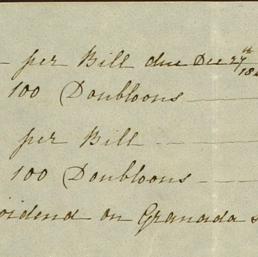 — per Bill due Dec 27th
18
100 Doubloons —
per Bill — — —
100 Doubloons — — —
vidend on Granada s